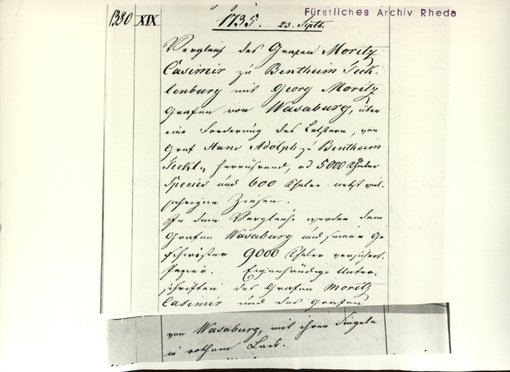 Fürstliches Archiv Rheda
1380 XIX 1735. 23. Septb.
Vergleich des Grafen Moritz
Casimir zu Bentheim Teck-
lenburg mit Georg Moritz
Grafen von Wasaburg, über
eine Forderung des Letztern, von
Graf Hans Adolph zu Bentheim
Teckl., herrührend, ad 5000 Thaler
Species und 600 Thaler nebst viel
jährigen Zinsen.
In dem Vergleiche werden dem
Grafen Wasaburg und seinen Ge
schwister 9000 Thaler versichert.
Papier. Eigenhändige Unter,
schriften des Grafen Moritz
Casimir und des Grafen
von Wasaburg, mit ihren Siegeln
in rothem Lack.